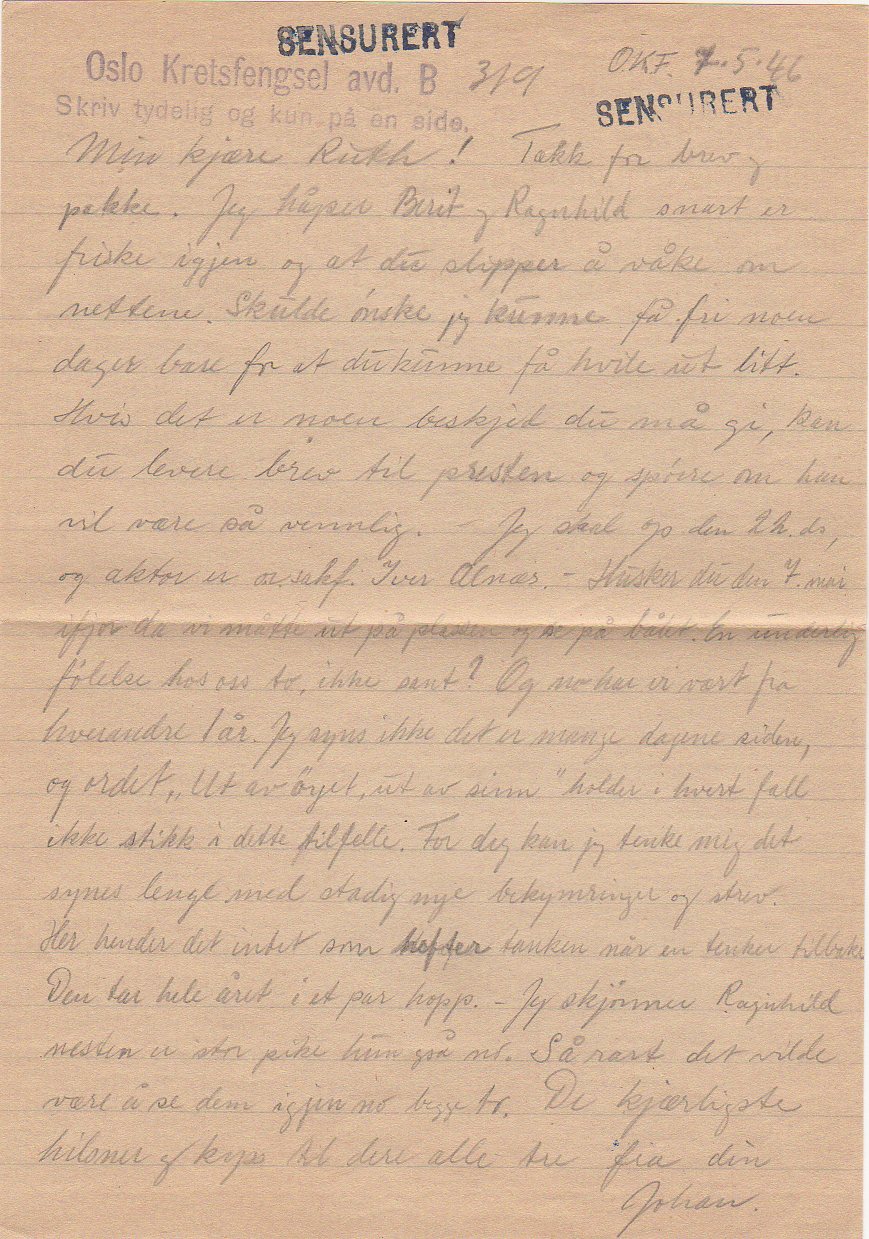 SENSURERT
Oslo Kretsfengsel avd. B 319 OKF. 7.5.46
Skriv tydelig og kun på en side. SENSURERT
Min kjære Ruth! Takk for brev og
pakke. Jeg håper Berit og Ragnhild snart er
friske igjen og at du slipper å våke om
nettene. Skulde ønske jeg kunne få fri noen
dager bare for at du kunne få hvile ut litt.
Hvis det er noen beskjed du må gi, kan
du levere brev til presten og spørre om han
vil være så vennlig. – Jeg skal op den 22. ds,
og aktor er o.r.sakf. Iver Alnæs. – Husker du den 7. mai
ifjor da vi måtte ut på plassen og se på bålet. En underlig
følelse hos oss to, ikke sant? Og no har vi vært fra
hverandre 1 år. Jeg syns ikke det er mange dagene siden,
og ordet „Ut av øyet, ut av sinn" holder i hvert fall
ikke stikk i dette tilfelle. For deg kan jeg tenke mig det
synes lenge med stadig nye bekymringer og strev.
Her hender det intet som hefter tanken når en tenker tilbake
Den tar hele året i et par hopp. – Jeg skjønner Ragnhild
nesten er stor pike hun også no. Så rart det vilde
være å se dem igjen no begge to. De kjærligste
hilsner og kyss til dere alle tre fra din
Johan.